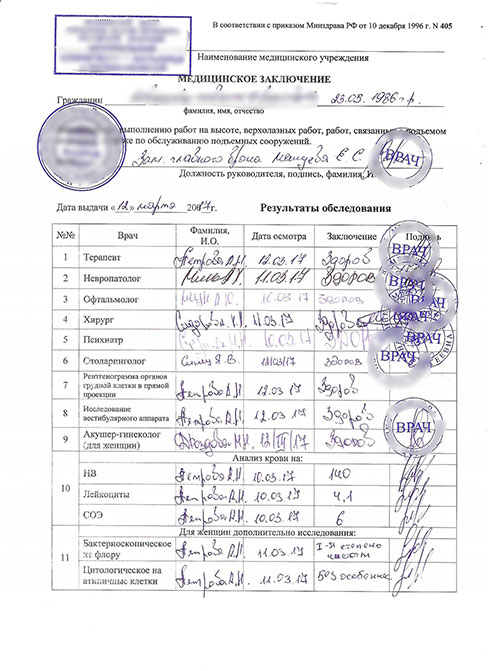 В соответствии с приказом Минздрава РФ от 10 декабря 1996 г. N 405
Наименование медицинского учреждения
МЕДИЦИНСКОЕ ЗАКЛЮЧЕНИЕ
Гражданин 23.05.1986 г.р.
фамилия, имя, отчество
выполнению работ на высоте, верхолазных работ, работ, связанных подъемом
же по обслуживанию подъемных сооружений.
Зам. главного врача Е. С. ВРАЧ
Должность руководителя, подпись, фамилия, И
Дата выдачи «12» марта 2017г. Результаты обследования
№№ Врач Фамилия, И.О. Дата осмотра Заключение Подпись
1 Терапевт Петрова А.И. 12.03.17 Здоров ВРАЧ
2 Невропатолог 11.03.17 Здоров
3 Офтальмолог 10.03.17 Здоров ВРАЧ
4 Хирург Сидорова 11.03.17 Здорова
5 Психиатр 10.03.17
6 Отоларинголог В. 12/03/17 здоров ВРАЧ
7 Рентгенограмма органов грудной клетки в прямой проекции Петрова А.И. 12.03.17 Здоров
8 Исследование вестибулярного аппарата Петрова А.И. 12.03.17 Здоров
9 Акушер-гинеколог (для женщин) 12/III/17 Здорова ВРАЧ
Анализ крови на:
10 НВ Петрова А.И. 10.03.17 140
Лейкоциты Петрова А.И. 10.03.17 4,1
СОЭ Петрова А.И. 10.03.17 6
Для женщин дополнительно исследования:
11 Бактериоскопическое на флору Петрова А.И. 11.03.17 I-я степень чистоты
Цитологическое на атипичные клетки Петрова А.И. 11.03.17 Без особеннос.